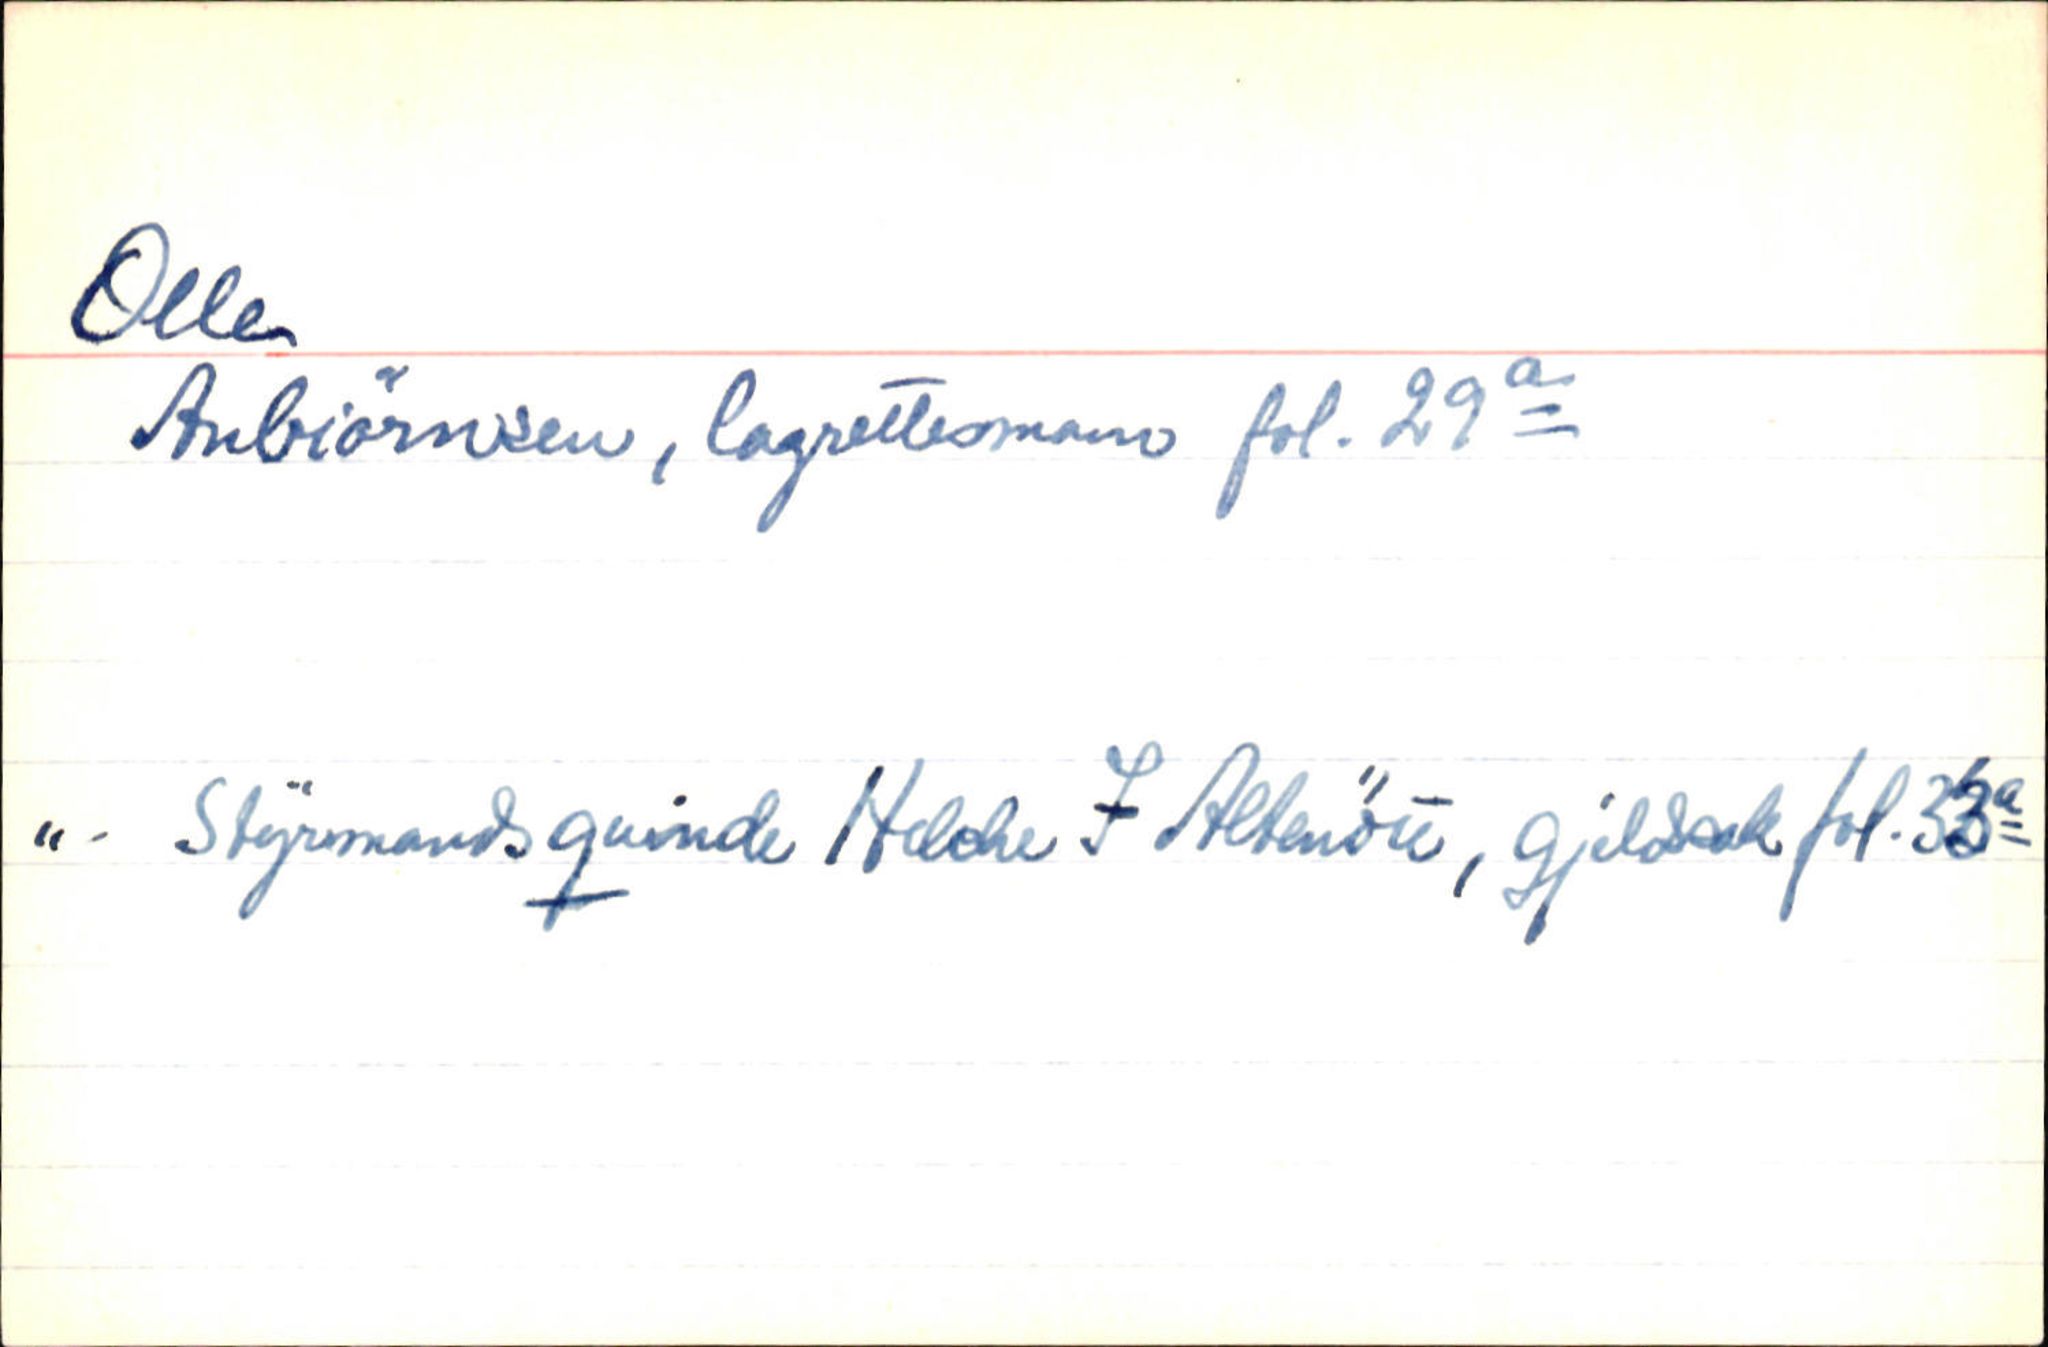 Olle
Anbiörnsen, lagrettesmann fol. 29a
"- Stÿrmands quinde Helche I Altenöü, gjeldssak fol. 33a